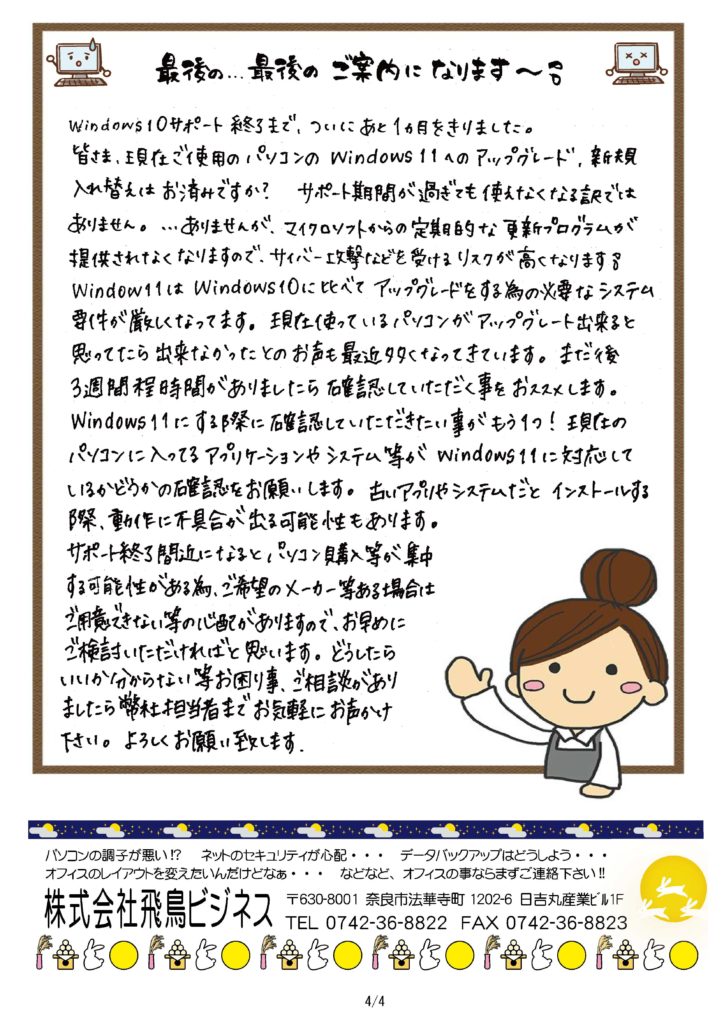 最後の…最後の ご案内に なります〜!!
Windows10サポート終了まで、ついにあと1ヵ月をきりました。
皆さま、現在ご使用のパソコンの Windows11へのアップグレード、新規
入れ替えは お済みですか? サポート期間が過ぎても使えなくなる訳では
ありません。…ありませんが、マイクロソフトからの定期的な更新プログラムが
提供されなくなりますので、サイバー攻撃などを受けるリスクが高くなります!!
Window11は Windows10に比べて アップグレードをする為の必要なシステム
要件が厳しくなってます。現在使っているパソコンがアップグレート出来ると
思ってたら出来なかったとのお声も最近多くなってきています。まだ後
3週間程時間がありましたら確認していただく事をおススメします。
Windows11にする際に確認していただきたい事がもう1つ! 現在の
パソコンに入ってるアプリケーションやシステム等が Windows11に対応して
いるかどうかの確認をお願いします。古いアプリやシステムだと インストールする
際、動作に不具合が出る可能性もあります。
サポート終了間近になるとパソコン購入等が集中
する可能性がある為、ご希望のメーカー等ある場合は
ご用意できない等の心配がありますので、お早めに
ご検討いただければと思います。どうしたら
いいか分からない等お困り事、ご相談があり
ましたら弊社担当者までお気軽にお声かけ
下さい。よろしくお願い致します.
パソコンの調子が悪い!? ネットのセキュリティが心配・・・ データバックアップはどうしよう・・・
オフィスのレイアウトを変えたいんだけどなぁ・・・ などなど、オフィスの事ならまずご連絡下さい!!
株式会社飛鳥ビジネス 〒630-8001 奈良市法華寺町 1202-6 日吉丸産業ビル1F
TEL 0742-36-8822 FAX 0742-36-8823
4/4